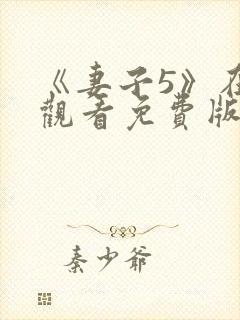 《妻子5》在
觀看免費版
秦少爺